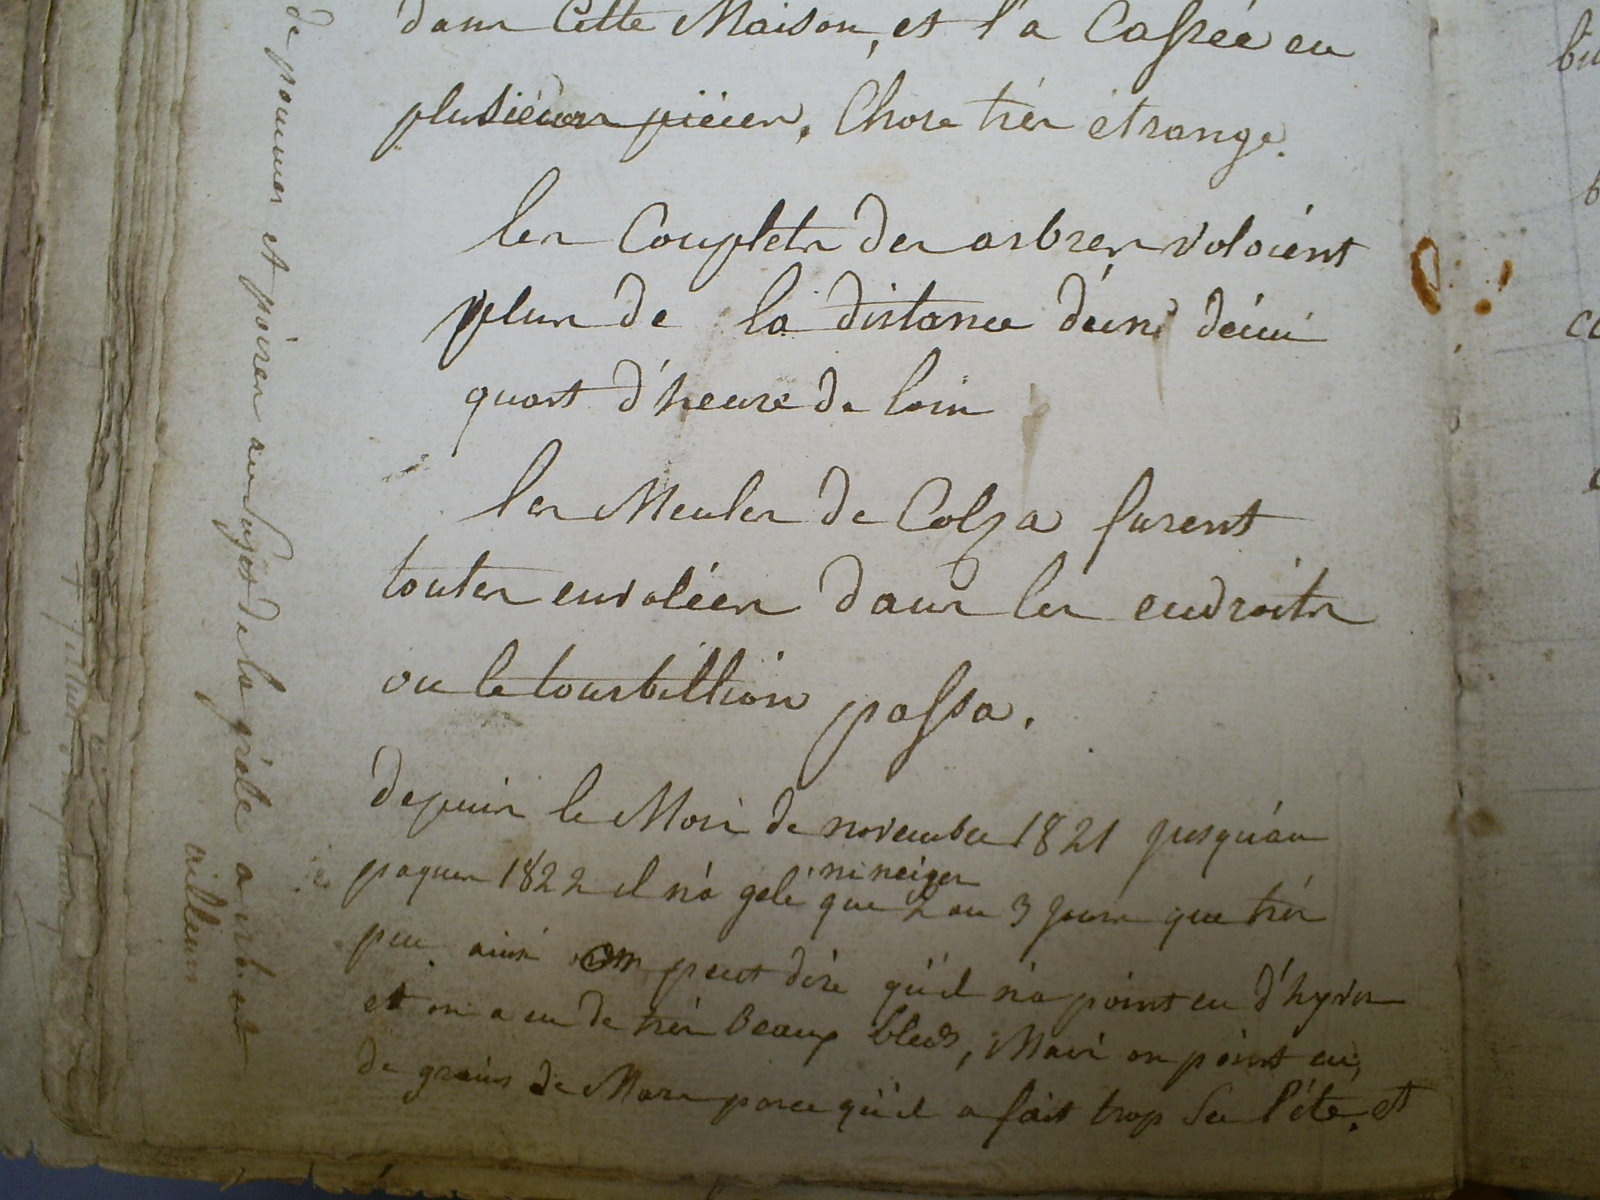 dans Cette Maison, et l'a Cassée en
plusieurs piéces, Chose trés étrange.
les Couplets des arbres voloient
plus de la distance d'une démi
quart d'heure de loin
les Meules de Colza furent
toutes envolées dans les endroits
ou le tourbillion passa.
depuis le Mois de novembre 1821 jusqu'au
paques 1822 il n'a gelé ni neiger que 2 ou 3 jours que trés
peu ainsi on peut dire qu'il n'a point eu d'hyver
et on a eu de trés beaux bleds, Mais on point eu,
de grains de Mars parce qu'il a fait trop sec l'éte, et
de pommes et poires au sujet de la grele
ailleurs